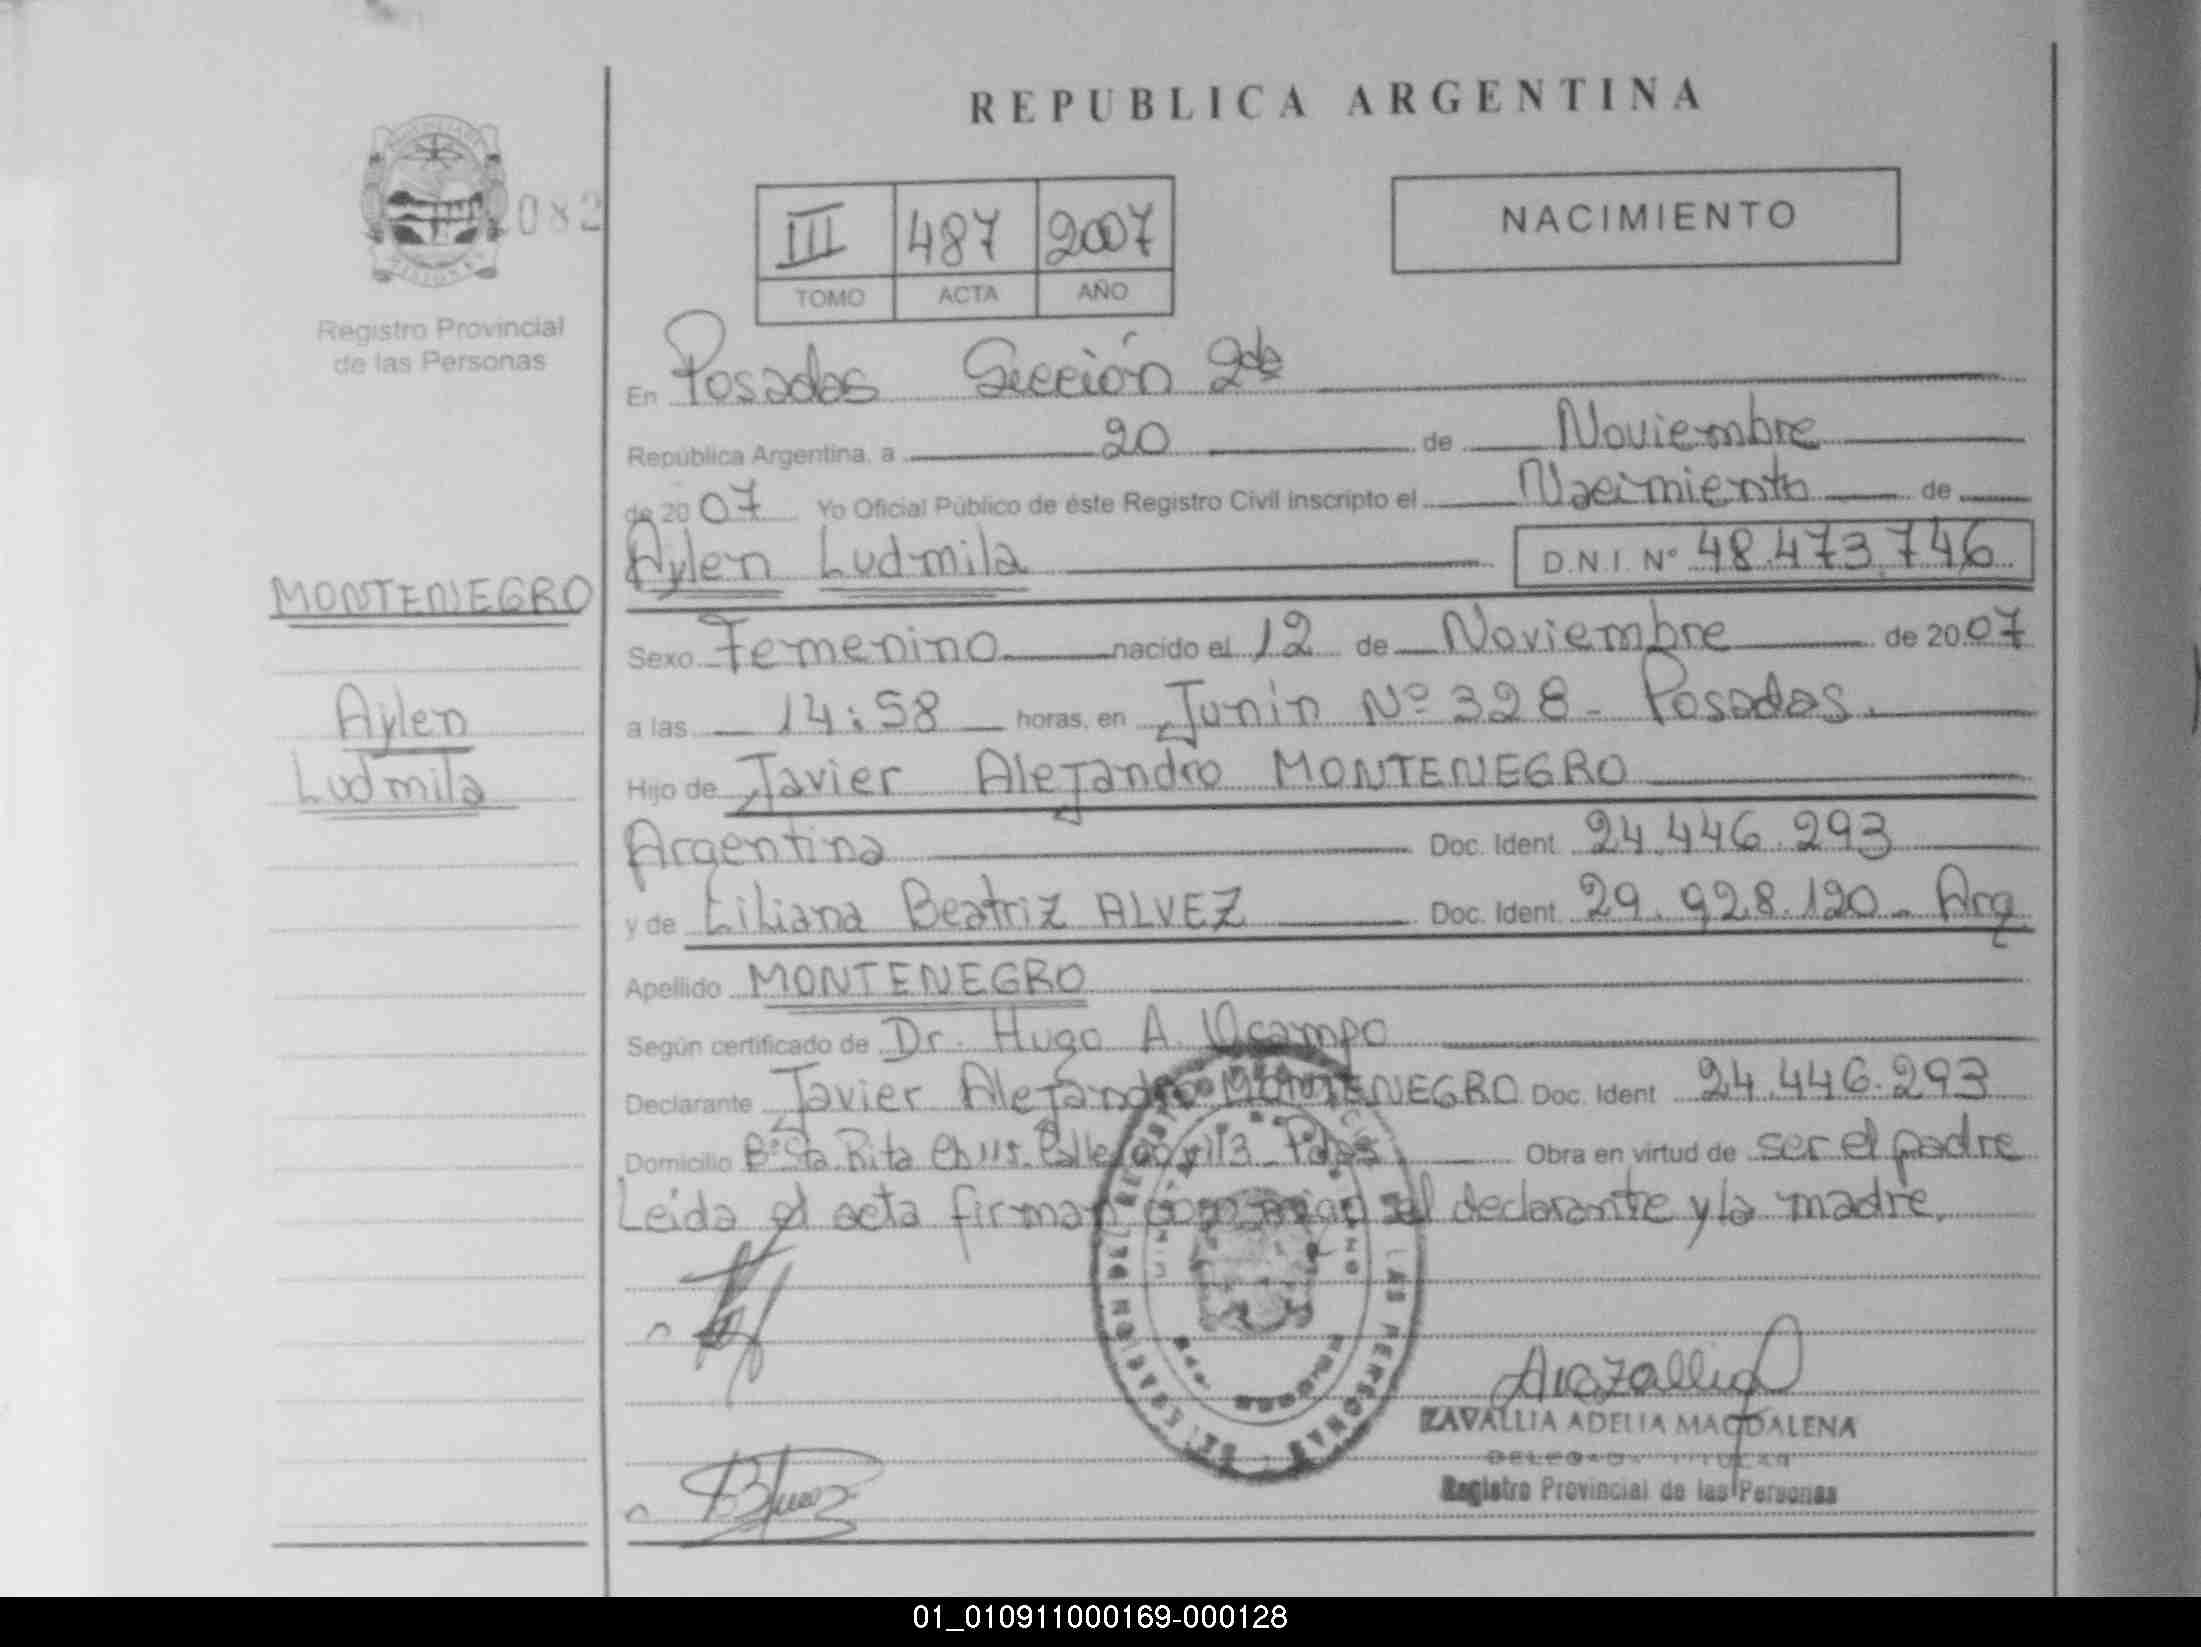 REPUBLICA ARGENTINA
082
III 487 2007
TOMO ACTA AÑO
NACIMIENTO
Registro Provincial
de las Personas
MONTENEGRO
Aylen
Ludmila
En Posadas Sección 2da
República Argentina, a 20 de Noviembre
de 2007 Yo Oficial Público de éste Registro Civil inscripto el Nacimiento de
Aylen Ludmila D.N.I. Nº 48.473.746
Sexo Femenino nacido el 12 de Noviembre de 2007
a las 14:58 horas, en Junin Nº 328 - Posadas.
Hijo de Javier Alejandro MONTENEGRO
Argentina Doc. Ident 24.446.293
y de Liliana Beatriz ALVEZ Doc. Ident. 29.928.120 - Arg
Apellido MONTENEGRO
Según certificado de Dr. Hugo A. Ocampo
Declarante Javier Alejandro MONTENEGRO Doc. Ident 24.446.293
Domicilio Bº Sta. Rita Ch 115. Calle Pdas Obra en virtud de ser el padre
Leida el acta firman conmigo el declarante y la madre.
ZAVALLIA ADELIA MAGDALENA
DELEGADA TITULAR
Registro Provincial de las Personas
01_010911000169-000128